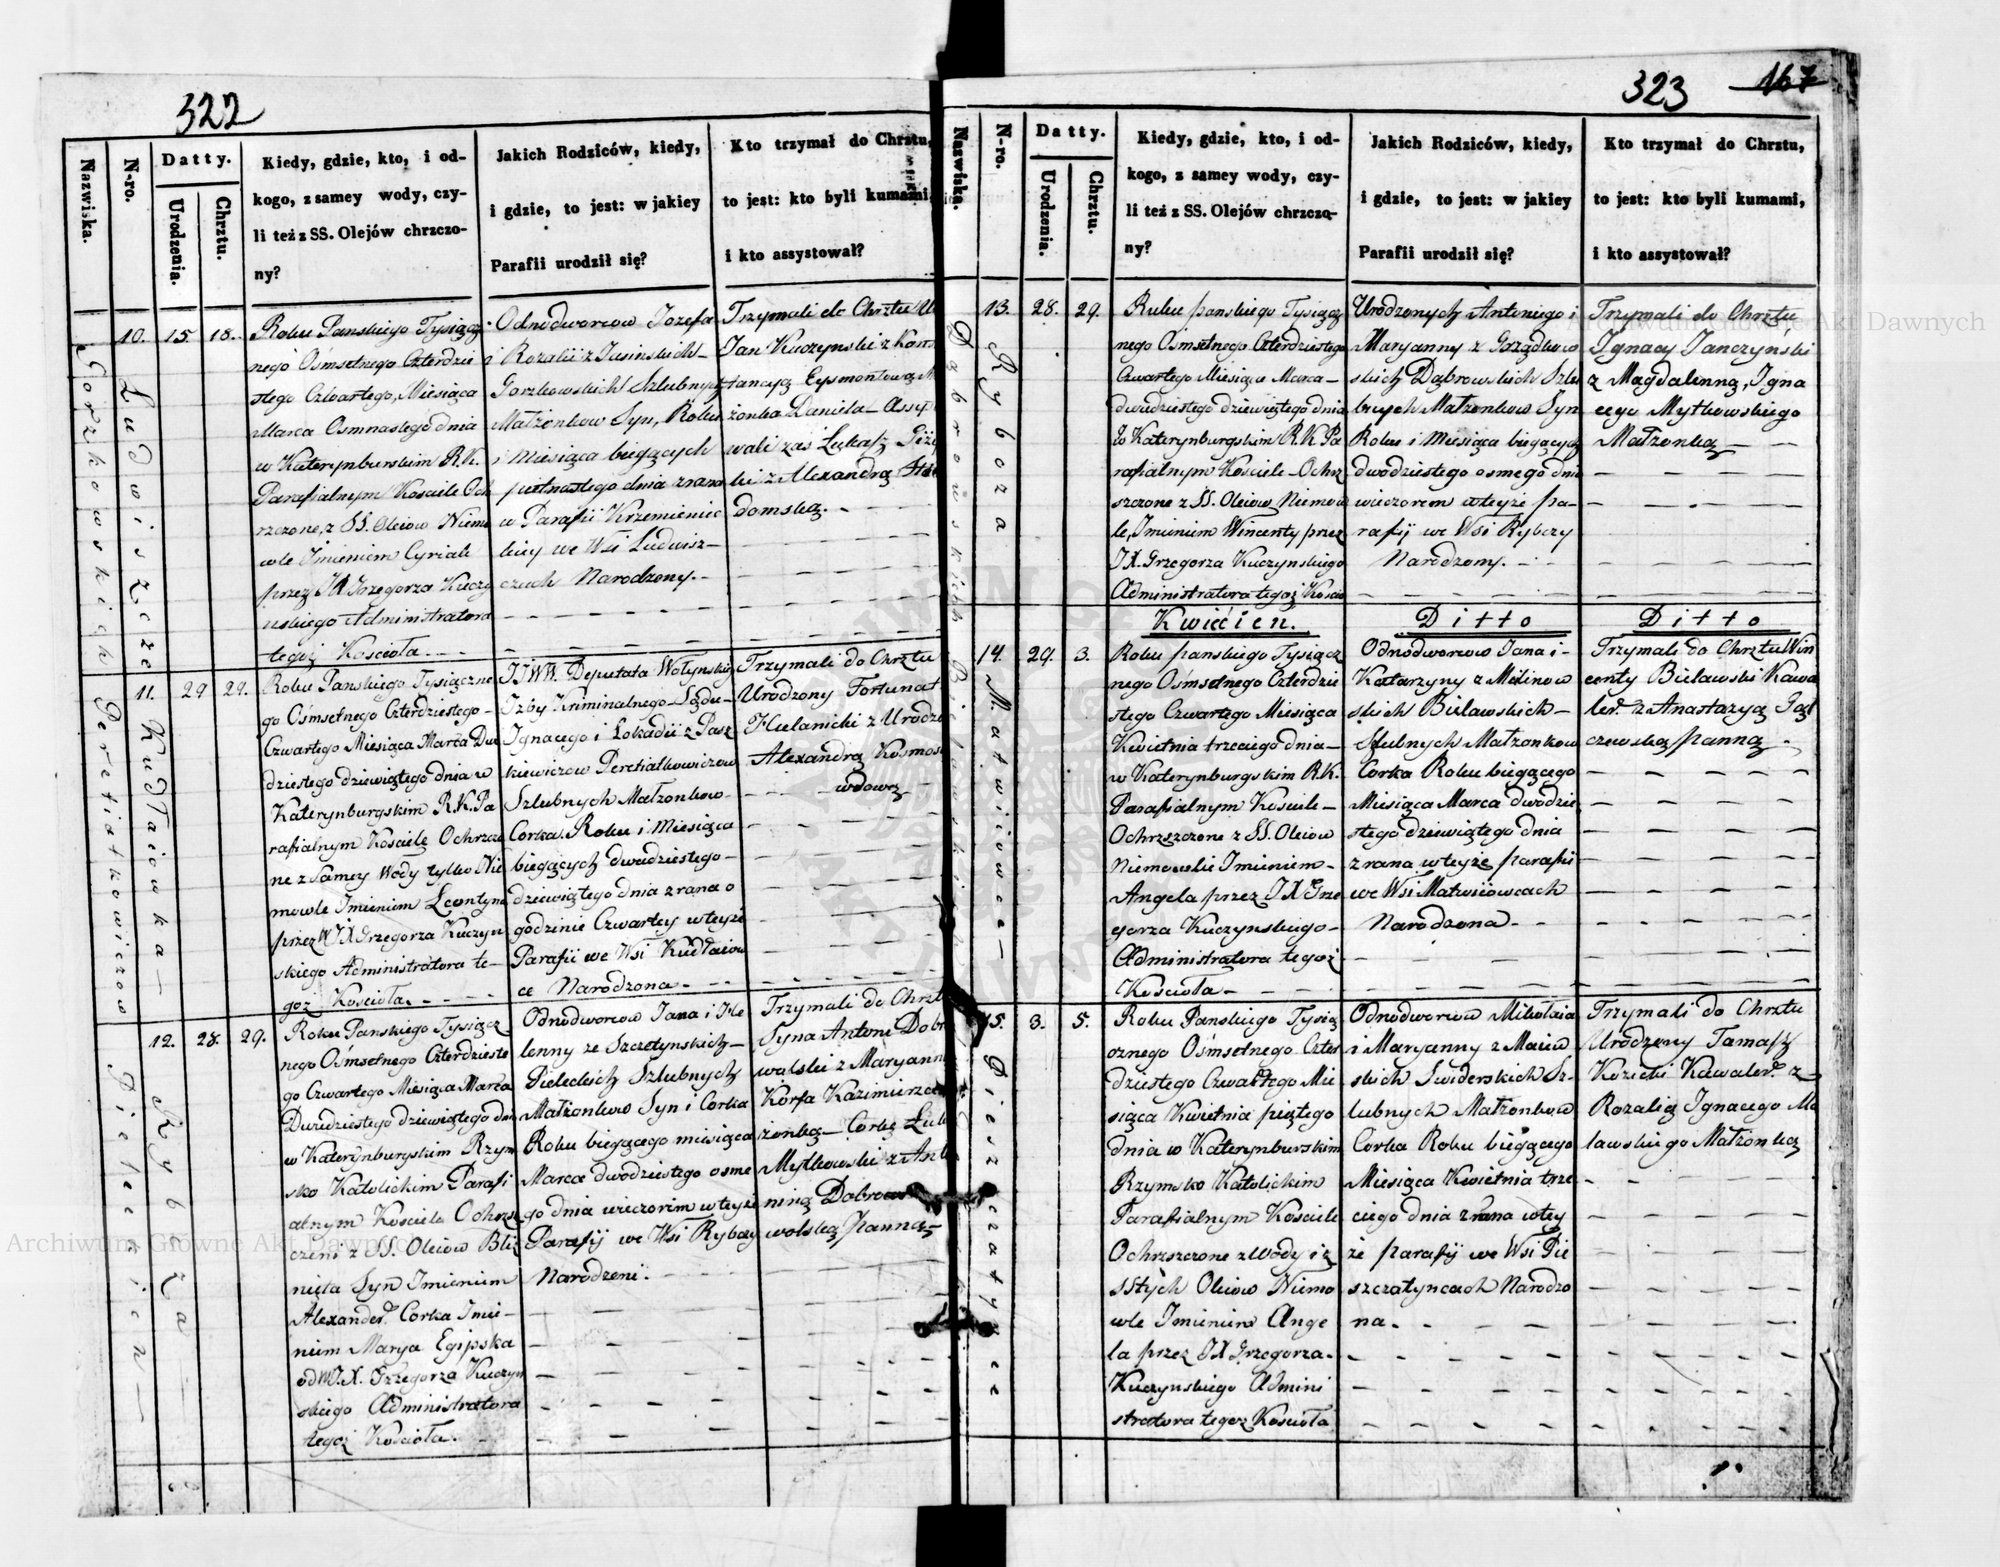 322
Nazwiska.
N-ro.
Datty.
Urodzenia.
Chrztu.
Kiedy, gdzie, kto, i od-
kogo, z samey wody, czy-
li też z SS. Olejów chrzczo-
ny?
Jakich Rodziców, kiedy,
i gdzie, to jest: w jakiey
Parafii urodził się?
Kto trzymał do Chrztu,
to jest: kto byli kumami,
i kto assystował?
Gorzkowskich
10. Ludwiszcze
15 18.
Roku Panskiego Tysiącz
nego Ośmsetnego Czterdzie
stego Czwartego, Miesiąca
Marca Osmnastego dnia
w Katerynburskim R.K.
Parafialnym Kosciele Och
rzczone, z SS. Oleiow Niemo
wle Imieniem Cyriak
przez JX Grzegorza Kuczy
nskiego Administratora
tegoż Kosciola.
Odnodworcow Jozefa
i Rozalii z Jasinskich
Gorzkowskich Szlubnych
Małżonkow Syn, Roku
i Miesiąca biegących
piętnastego dnia zrana
w Parafii Krzemieniec
kiey we Wsi Ludwisz-
czach Narodzony.
Trzymali do Chrztu
Jan Kuczynski z Kons
tancyą Eysmontową
żonka Daniela Assy
wali zaś Łukasz
ki z Alexandrą
domską.
Peretiatkowiczow
11. Kudłaiowka
29 29.
Roku Panskiego Tysiączne
go Ośmsetnego Czterdziestego
Czwartego Miesiąca Marca Dwu
dziestego dziewiątego dnia w
Katerynburgskim R.K. Pa
rafialnym Kosciele Ochrzczo
ne z Samey Wody tylko Nie
mowle Imieniem Leontyna
przez WJX Grzegorza Kuczyn
skiego Administratora te-
goż Kosciola.
JJWW. Deputata Wołynskiey
Izby Kriminalnego Sądu
Ignacego i Lokadii z Pasz
kiewiczow Peretiatkowiczow
Szlubnych Małzonkow
Corka. Roku i Miesiąca
biegących dwudziestego
dziewiątego dnia zrana o
godzinie Czwartey w teyże
Parafii we Wsi Kudłaiow
ce Narodzona.
Trzymali do Chrztu
Urodzony Fortunat
Hulanicki z Urodzo
Alexandrą Kosmos
wdową
Pieleckich
12. Rybcza
28. 29.
Roku Panskiego Tysiącz
nego Ośmsetnego Czterdzieste
go Czwartego Miesiąca Marca
Dwudziestego dziewiątego dnia
w Katerynburgskim Rzym
sko Katolickim Parafi
alnym Kosciele Ochrzsz
czeni z SS. Oleiow Bliz
nięta Syn Imieniem
Alexander Corka Imie-
niem Marya Egipska
od WJ.X. Grzegorza Kuczyn
skiego Administratora
tegoż Kosciola.
Odnodworcow Jana i He
lenny ze Szczetynskich
Pieleckich Szlubnych
Małżonkow Syn i Corka
Roku biegącego miesiąca
Marca dwodziestego osme
go dnia wieczorem w teyże
Parafij we Wsi Rybczy
Narodzeni.
Trzymali do Chrztu
Syna Antoni Dobro
walski z Maryanną
Korfa Kazimierza
żonką Corkę
Mytkowski z Anto
niną Dobro
wolską Panną
323
167
Nazwiska.
N-ro.
Datty.
Urodzenia.
Chrztu.
Kiedy, gdzie, kto, i od-
kogo, z samey wody, czy-
li też z SS. Olejów chrzczo-
ny?
Jakich Rodziców, kiedy,
i gdzie, to jest: w jakiey
Parafii urodził się?
Kto trzymał do Chrztu,
to jest: kto byli kumami,
i kto assystował?
Dąbrowskich
13. Rybcza
28. 29.
Roku panskiego Tysiącz
nego Osmsetnego Czterdziestego
Czwartego Miesiąca Marca
dwudziestego dziewiątego dnia
w Katerynburgskim R.K. Pa
rafialnym Kosciele Ochrz
szczone z SS. Oleiow Niemow
le, Imieniem Wincenty przez
JX. Grzegorza Kuczynskiego
Administratora tegoż Koscio
Urodzonych Antoniego i
Maryanny z Gorządkow
skich Dąbrowskich Szlu
bnych Małzonkow Syn
Roku i Miesiąca biegących
dwodziestego osmego dnia
wieczorem w teyże pa-
rafij we Wsi Rybczy
Narodzony.
Trzymali do Chrztu
Ignacy Janczynski
z Magdalenną, Igna
cego Mytkowskiego
Małzonką
Kwiećien.
Ditto
Ditto
Bielawskich
14. Matwiiowce
29. 3.
Roku panskiego Tysiącz
nego Ośmsetnego Czterdzie
stego Czwartego Miesiąca
Kwietnia trzeciego dnia
w Katerynburgskim R.K.
Parafialnym Kosciele
Ochrzszczone z SS. Oleiow
Niemowle Imieniem
Angela przez JX Grze
gorza Kuczynskiego
Administratora tegoż
Kosciola
Odnodworcow Jana i
Katarzyny z Malinow
skich Bielawskich
Szlubnych Małzonkow
Corka Roku biegącego
Miesiąca Marca dwodzie
stego dziewiątego dnia
zrana w teyże parafii
we Wsi Matwiiowcach
Narodzona
Trzymali do Chrztu Win
centy Bielawski Kawa
ler z Anastazyą
czewską panną
15. Pieszczatynce
3. 5.
Roku Panskiego Tysią
cznego Ośmsetnego Czter
dziestego Czwartego Mie
siąca Kwietnia piątego
dnia w Katerynburskim
Rzymsko Katolickim
Parafialnym Kosciele
Ochrzszczone z Wody i z
SStych Oleiow Niemo
wle Imieniem Ange
la przez JX Grzegorza
Kuczynskiego Admini
stratora tegoz Kosciola
Odnodworcow Mikołaia
i Maryanny z Maiew
skich Swiderskich Sz-
lubnych Małzonkow
Corka Roku biegącego
Miesiąca Kwietnia trze
ciego dnia zrana w tey
że parafij we Wsi Pie
szczatyncach Narodzo
na.
Trzymali do Chrztu
Urodzony Tamasz
Kozicki Kawaler z
Rozalią Ignacego Ma
lawskiego Małzonką
Archiwum Główne Akt Dawnych
Archiwum Główne Akt Dawnych